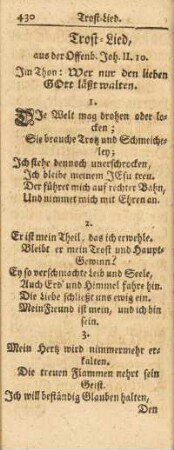 430 Trost-Lied.
Trost-Lied,
aus der Offenb. Joh. II. 10.
Im Thon: Wer nur den lieben
GOtt läßt walten.
1.
DIe Welt mag drohen oder lo-
cken;
Sie brauche Trotz und Schmeiche-
ley;
Ich stehe dennoch unerschrocken,
Ich bleibe meinem JEsu treu.
Der führet mich auf rechter Bahn,
Und nimmet mich mit Ehren an.
2.
Er ist mein Theil, das ich erwehle.
Bleibt er mein Trost und Haupt-
Gewinn?
Ey so verschmachte Leib und Seele,
Auch Erd' und Himmel fahre hin.
Die Liebe schließt uns ewig ein.
Mein Freund ist mein, und ich bin
sein.
3.
Mein Hertz wird nimmermehr er-
kalten.
Die treuen Flammen nehrt sein
Geist.
Ich will beständig Glauben halten,
Den